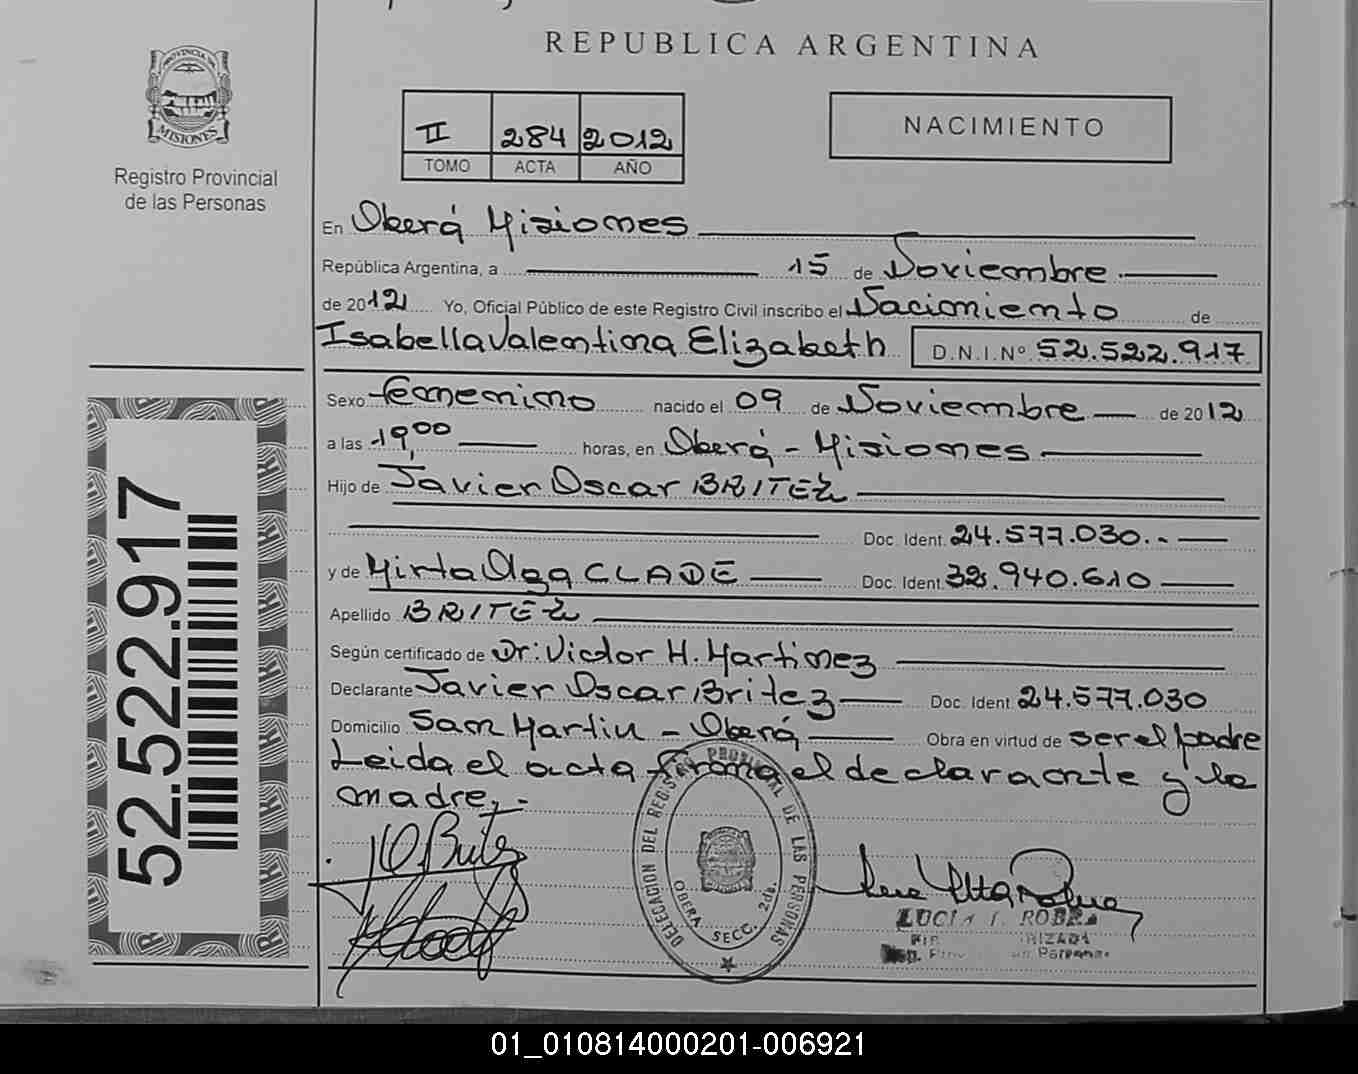 REPUBLICA ARGENTINA
PROVINCIA DE
MISIONES
Registro Provincial
de las Personas
II 284 2012
TOMO ACTA AÑO
NACIMIENTO
En Oberá Misiones
República Argentina, a 15 de Noviembre
de 2012 Yo, Oficial Público de este Registro Civil inscribo el Nacimiento de
Isabella Valentina Elizabeth D.N.I.Nº 52.522.917
Sexo femenino nacido el 09 de Noviembre de 2012
a las 19,00 horas, en Oberá - Misiones
Hijo de Javier Oscar BRITEZ
Doc. Ident. 24.577.030.-
y de Mirta Olga CLADE Doc. Ident. 32.940.610
Apellido BRITEZ
Según certificado de Dr: Victor H. Martinez
Declarante Javier Oscar Britez Doc. Ident. 24.577.030
Domicilio San Martin - Oberá Obra en virtud de ser el padre
Leida el acta firma el declarante y la
madre,.-
52.522.917
DELEGACION DEL REGISTRO PROVINCIAL DE LAS PERSONAS
OBERA SECC. 2da.
LUCIA
01_010814000201-006921